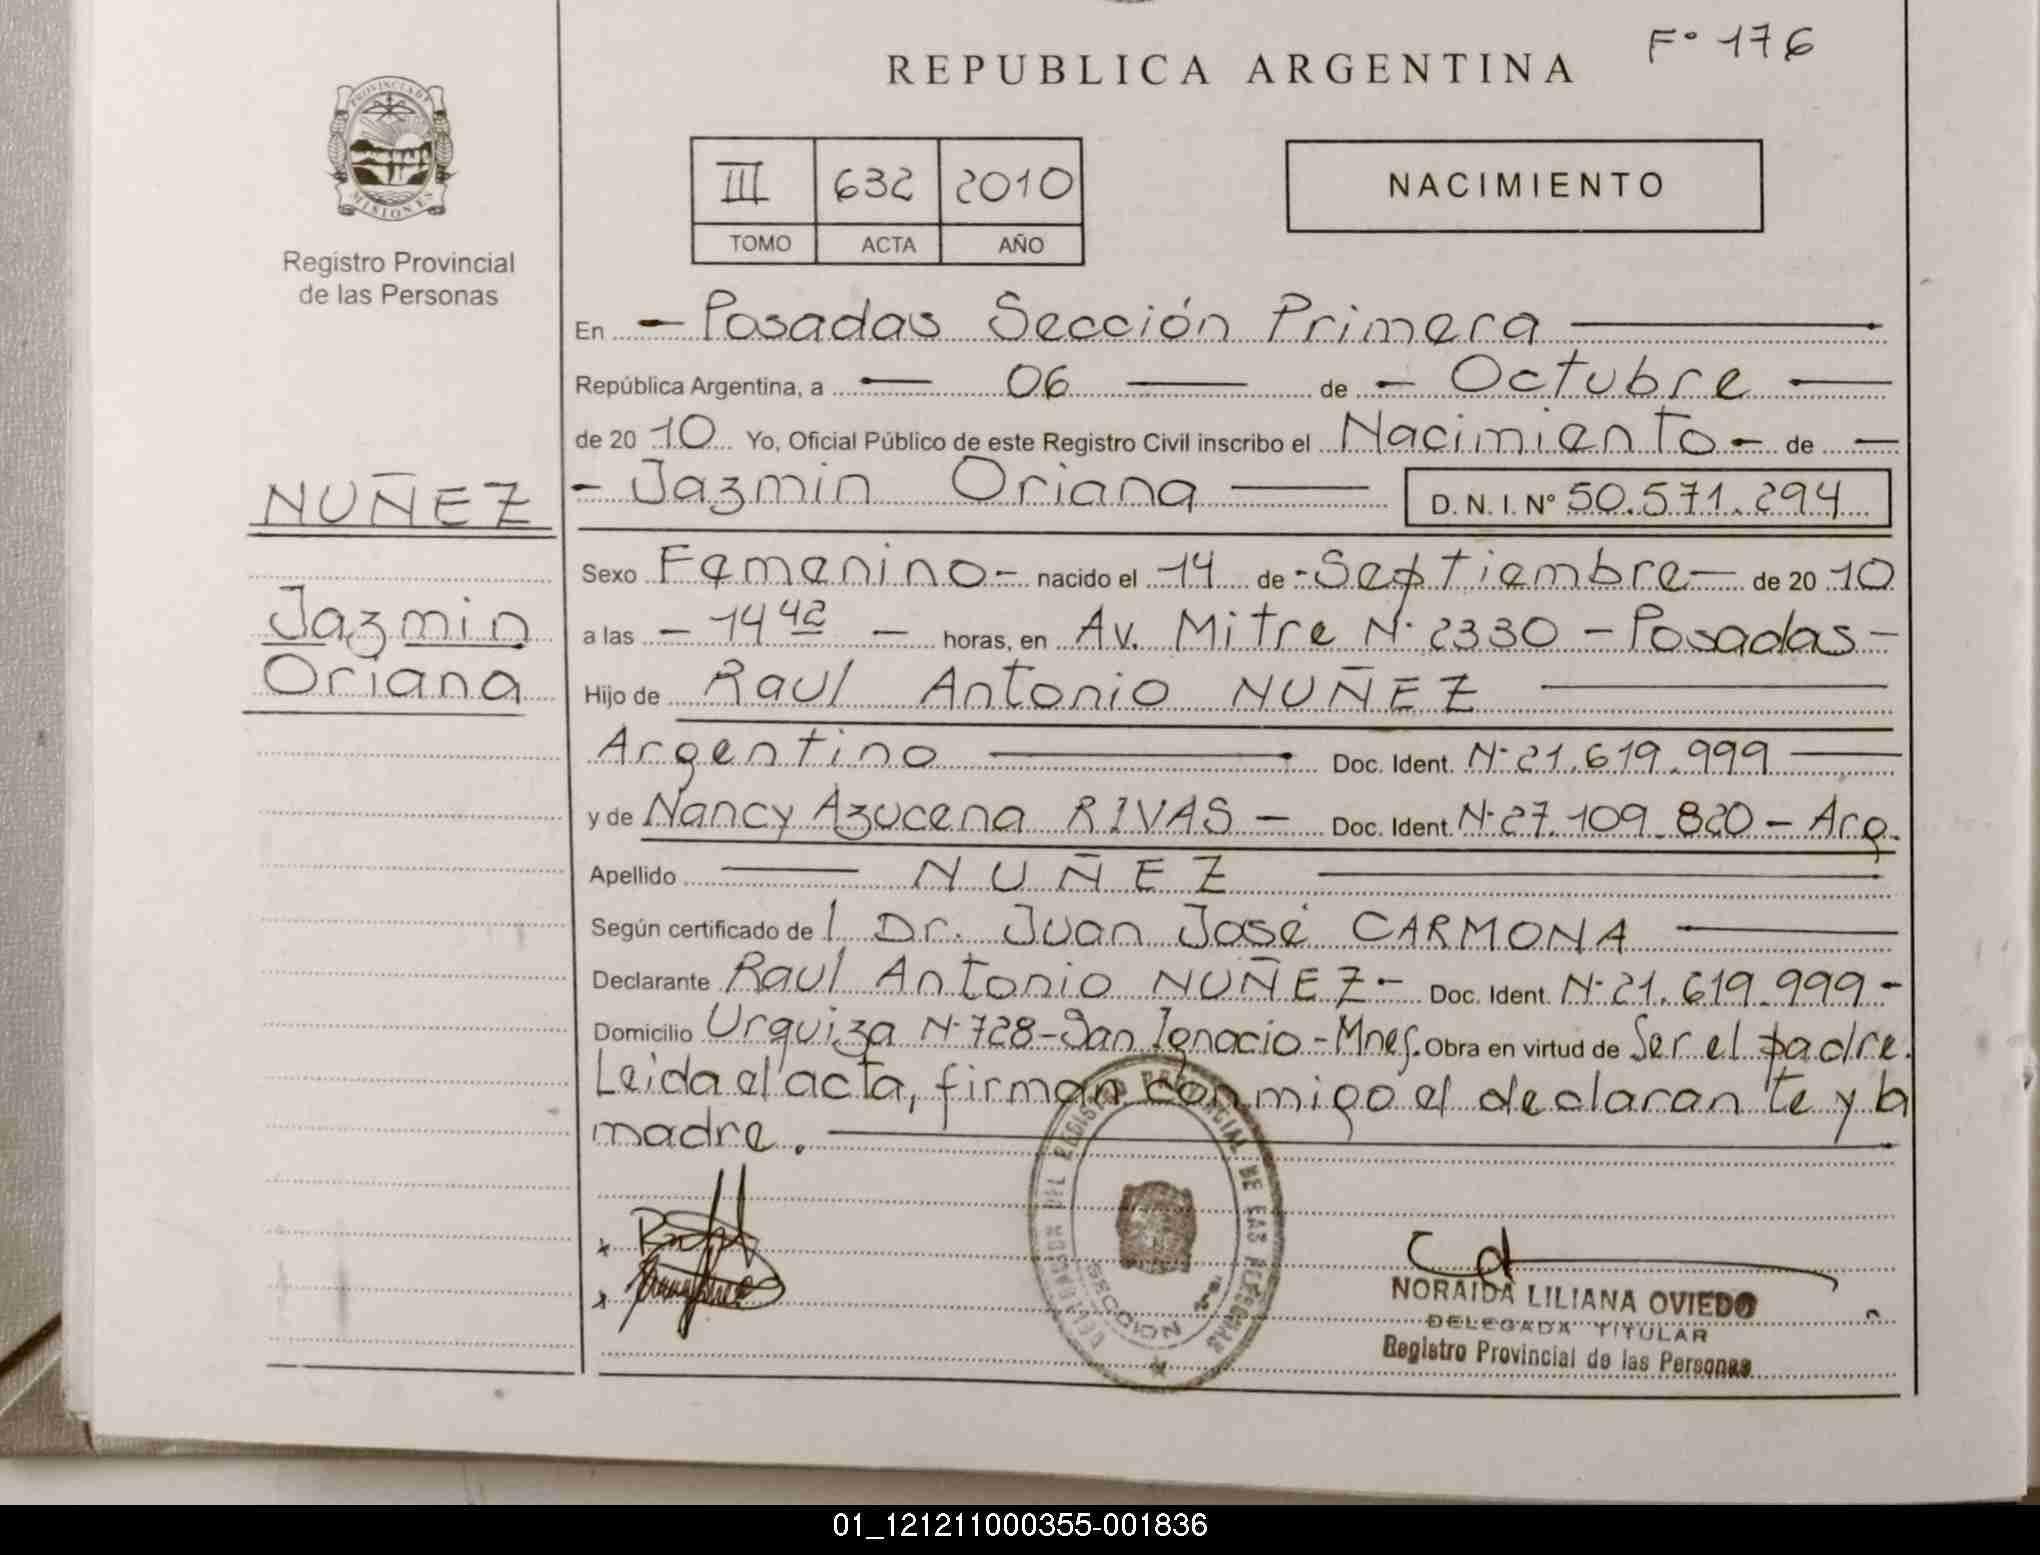 F° 176
REPUBLICA ARGENTINA
PROVINCIA DE
MISIONES
Registro Provincial
de las Personas
III 632 2010
TOMO ACTA AÑO
NACIMIENTO
En - Posadas Sección Primera
República Argentina, a - 06 - de - Octubre -
de 20 10 Yo, Oficial Público de este Registro Civil inscribo el Nacimiento - de -
- Jazmin Oriana - D. N. I. N° 50.571.294
NUÑEZ
Jazmin
Oriana
Sexo Femenino - nacido el 14 de - Septiembre - de 20 10
a las - 14 42 - horas, en Av. Mitre N° 2330 - Posadas -
Hijo de Raul Antonio NUÑEZ
Argentino - Doc. Ident. N° 21.619.999
y de Nancy Azucena RIVAS - Doc. Ident. N° 27.109.820 - Arg.
Apellido - NUÑEZ
Según certificado de l Dr. Juan José CARMONA
Declarante Raul Antonio NUÑEZ - Doc. Ident. N° 21.619.999 -
Domicilio Urquiza N° 728 - San Ignacio - Mnes. Obra en virtud de Ser el padre.
Leida el acta, firman conmigo el declarante y la
madre.
REGISTRO PROVINCIAL DE LAS PERSONAS
SECCION
NORAIDA LILIANA OVIEDO
DELEGADA TITULAR
Registro Provincial de las Personas
01_121211000355-001836